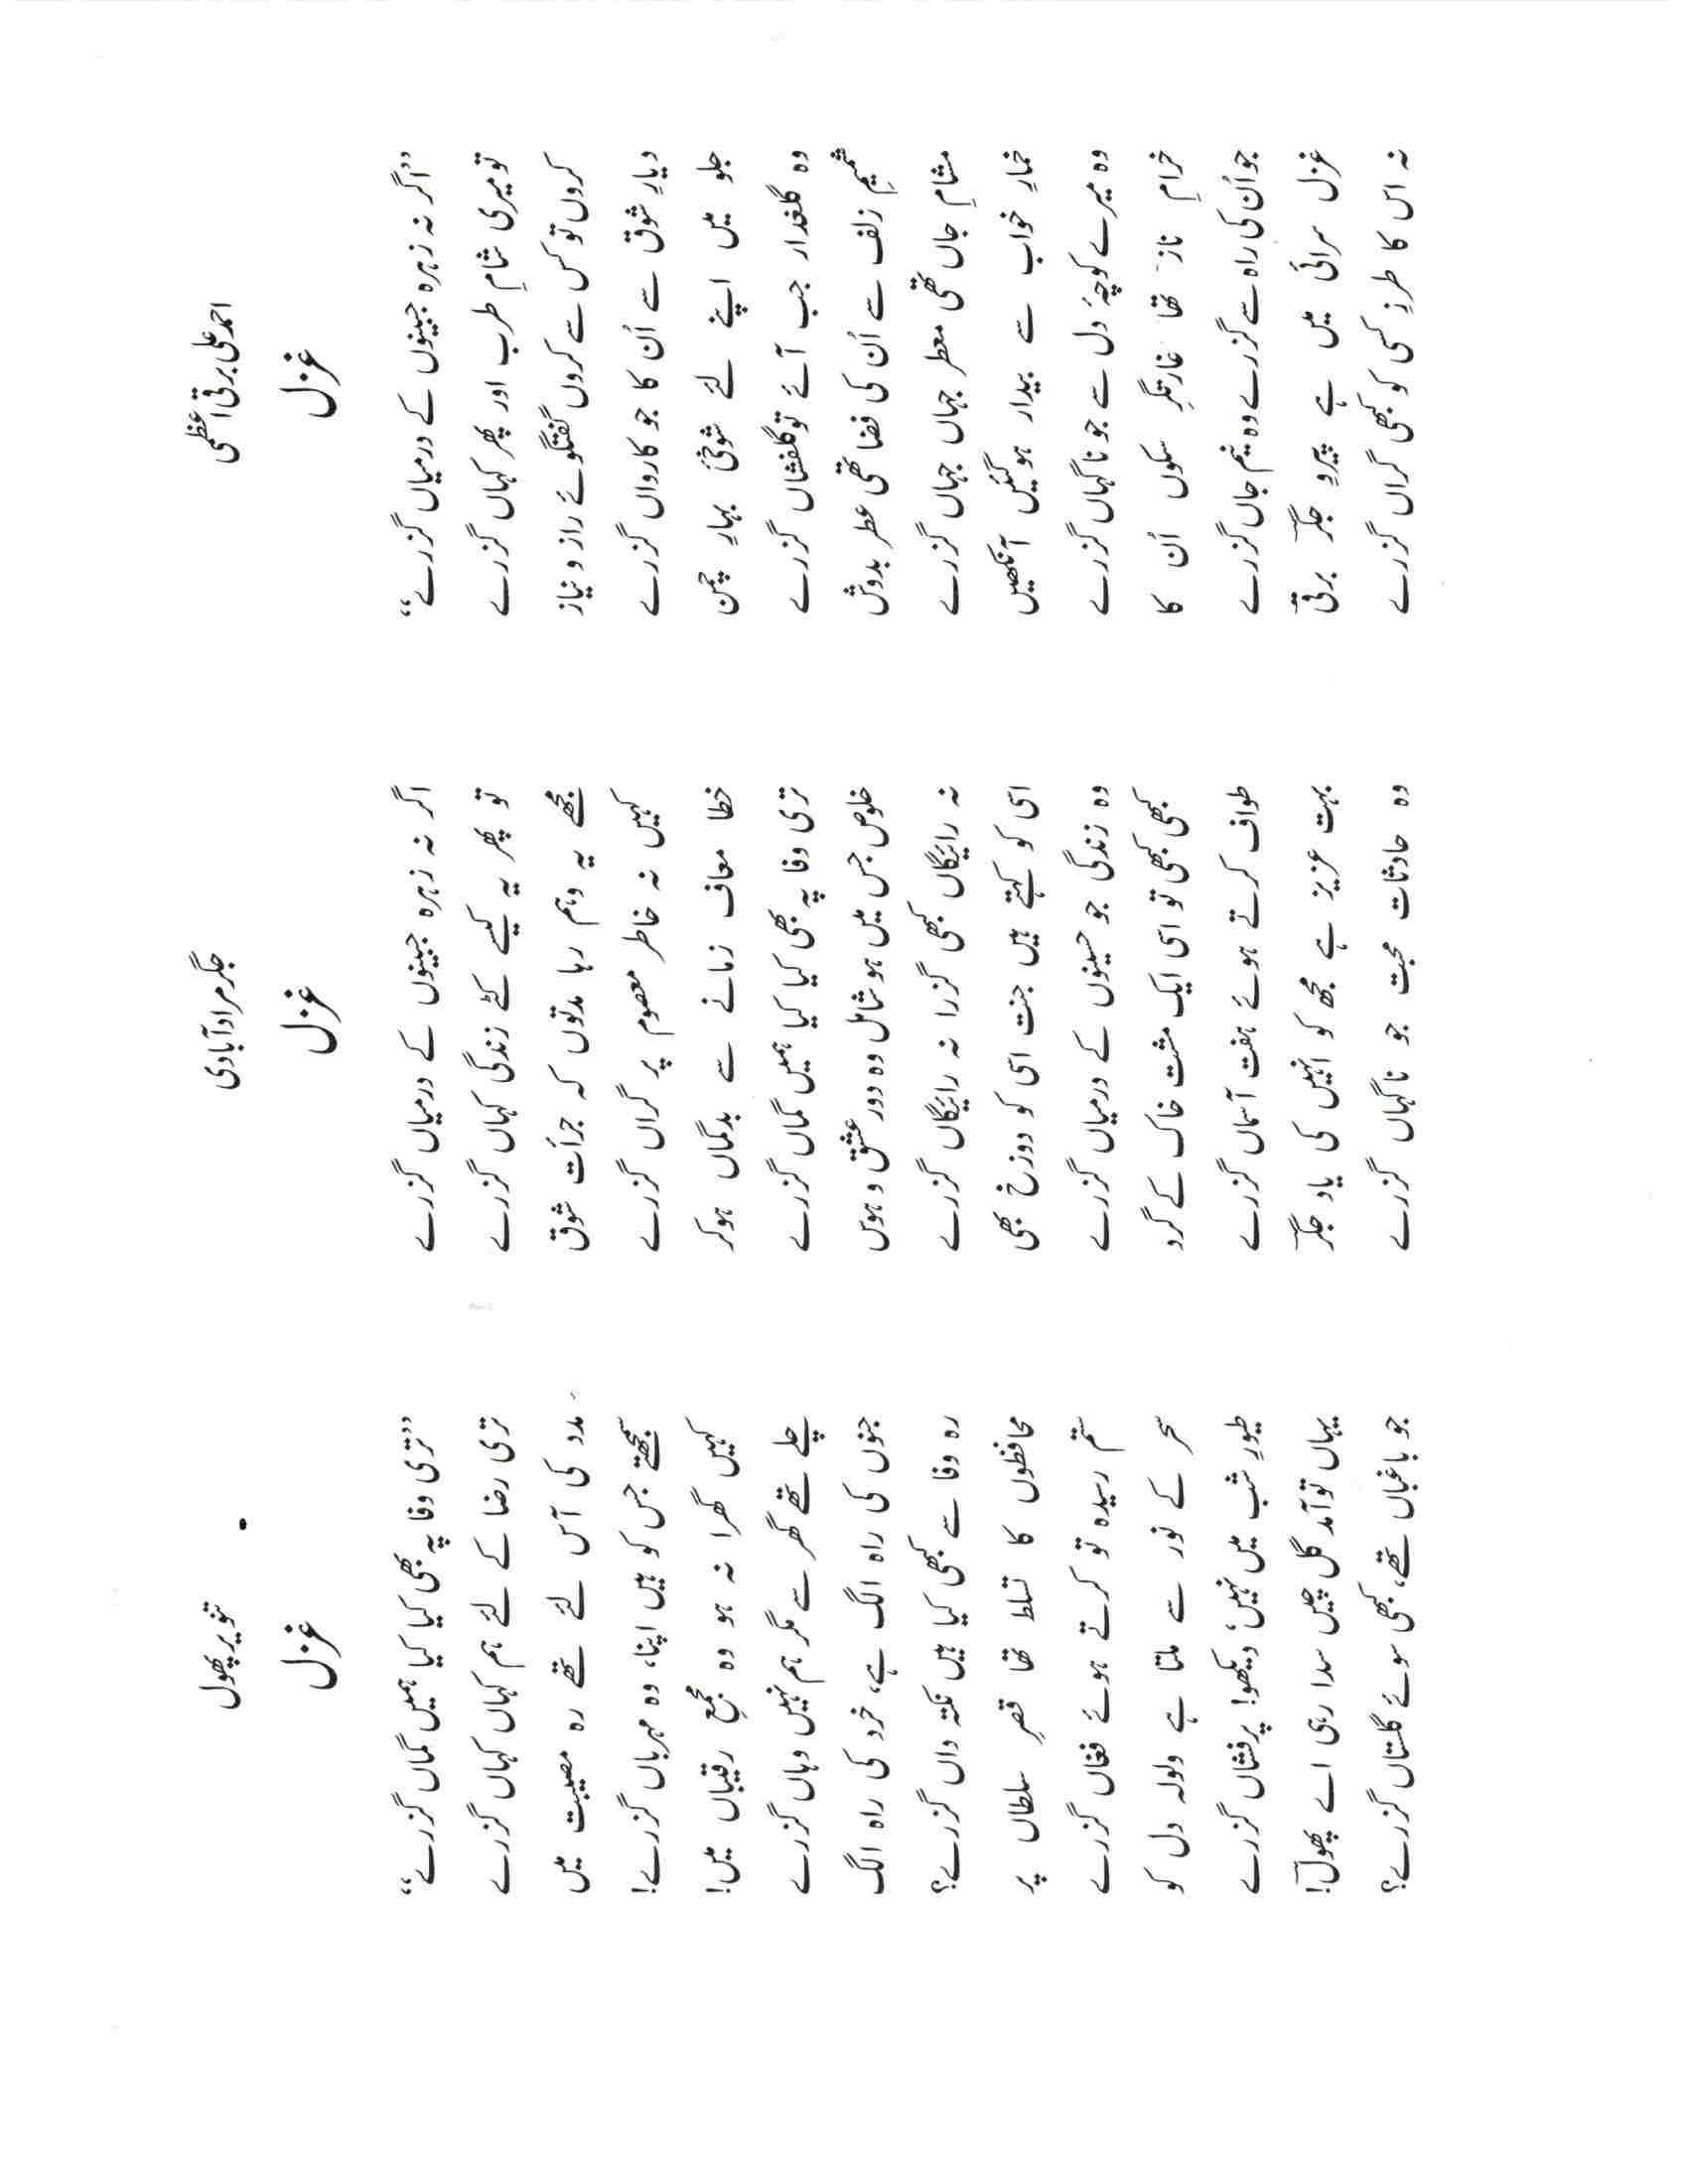 احمد علی برقی اعظمی
غزل
’’اگر نہ زہرہ جبینوں کے درمیاں گزرے‘‘
تو میری شامِ طرب اور پھر کہاں گزرے
کروں تو کس سے کروں گفتگوئے راز و نیاز
دیارِ شوق سے اُن کا جو کارواں گزرے
جلو میں اپنے لئے شوخیٔ بہارِ چمن
وہ گلغدار جب آئے تو گلفشاں گزرے
شمیمِ زلف سے اُن کی فضا تھی عطر بدوش
مشامِ جاں تھی معطر جہاں جہاں گزرے
خمارِ خواب سے بیدار ہوگئیں آنکھیں
وہ میرے کوچۂ دل سے جو ناگہاں گزرے
خرامِ ناز تھا غارتگرِ سکوں اُن کا
جو اُن کی راہ سے گزرے وہ نیم جاں گزرے
غزل سرائی میں ہے پیروِ جگرؔ برقیؔ
نہ اس کا طرز کسی کو کبھی گراں گزرے
جگر مرادآبادی
غزل
اگر نہ زہرہ جبینوں کے درمیاں گزرے
تو پھر یہ کیسے کٹے زندگی کہاں گزرے
مجھے یہ وہم رہا مدتوں کہ جرأت شوق
کہیں نہ خاطر معصوم پر گراں گزرے
خطا معاف زمانے سے بدگماں ہوکر
تری وفا پہ بھی کیا کیا ہمیں گماں گزرے
خلوص جس میں ہو شامل وہ دور عشق و ہوس
نہ رائیگاں کبھی گزرا نہ رائیگاں گزرے
اسی کو کہتے ہیں جنت اسی کو دوزخ بھی
وہ زندگی جو حسینوں کے درمیاں گزرے
کبھی کبھی تو اسی ایک مشت خاک کے گرد
طواف کرتے ہوئے ہفت آسماں گزرے
بہت عزیز ہے مجھ کو انہیں کی یاد جگرؔ
وہ حادثات محبت جو ناگہاں گزرے
تنویر پھول
غزل
’’تری وفا پہ بھی کیا کیا ہمیں گماں گزرے‘‘
تری رضا کے لئے ہم کہاں کہاں گزرے
مدد کی آس لئے تھے رہ مصیبت میں
سمجھتے جس کو ہیں اپنا، وہ مہرباں گزرے!
کہیں گھرا نہ ہو وہ مجمعِ رقیباں میں!
چلے تھے گھر سے مگر ہم نہیں وہاں گزرے
جنوں کی راہ الگ ہے، خرد کی راہ الگ
رہ وفا سے کبھی کیا ہیں نکتہ داں گزرے؟
محافظوں کا تسلط تھا قصرِ سلطاں پر
ستم رسیدہ تو کرتے ہوئے فغاں گزرے
سحر کے نور سے ملتا ہے ولولہ دل کو
طیورِ شب میں نہیں، دیکھو! پرفشاں گزرے
یہاں تو آمد گل چیں سدا رہی اے پھولؔ!
جو باغباں تھے، کبھی سوئے گلستاں گزرے؟